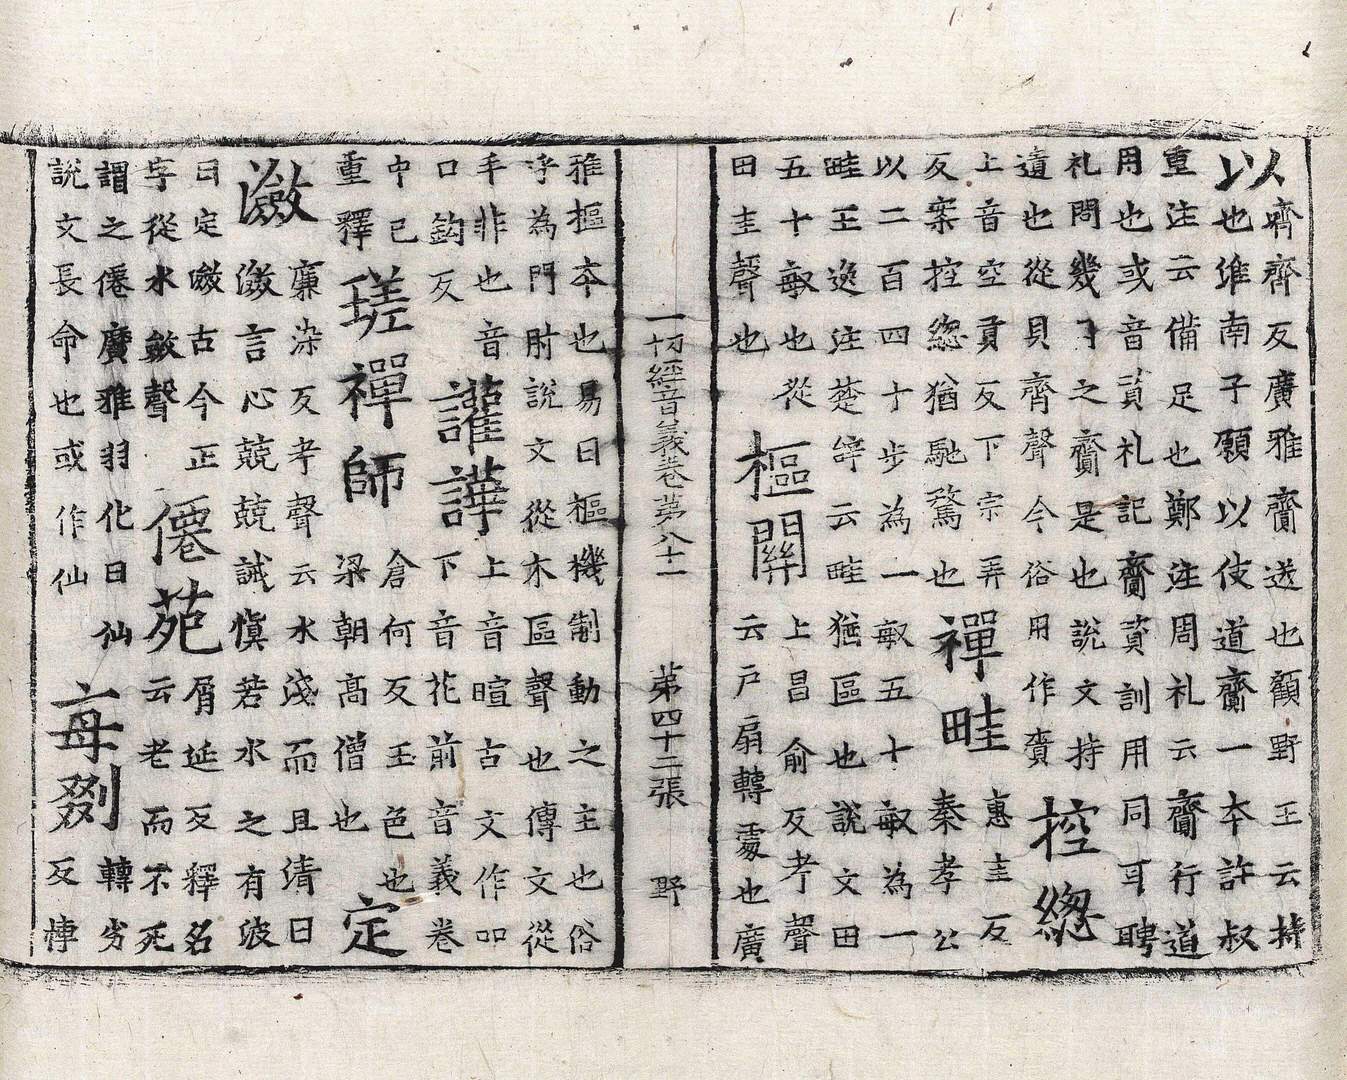 以 𪗋齊反廣雅齎送也顧野王云持
也淮南子願以伎道齎一本許叔
重注云備足也鄭注周礼云齎行道
用也或音貲礼記齎貲訓用同耳聘
礼問幾月之齎是也說文持
遺也從貝齊聲今俗用作賫 控緫
上音空貢反下宗弄
反案控緫猶馳騖也 禪畦 惠圭反
秦孝公
以二百四十步為一畝五十畝為一
畦王逸注楚辝云畦猶區也說文田
五十畝也從
田圭聲也 樞關 上昌俞反考聲
云戶扇轉處也廣
一切經音義卷苐八十一 苐四十二張 野
雅樞本也易曰樞機制動之主也俗
字為門肘說文從木區聲也傳文從
手非也音
口鈎反 讙譁 上音暄古文作吅
下音花前音義卷
中已
重釋 瑳禪師 倉何反玉色也
梁朝高僧也 定
瀲 廉染反考聲云水淺而且清曰
瀲瀲言心兢兢誡慎若水之有波
曰定瀲古今正
字從水斂聲 僊苑 屑延反釋名
云老而不死
謂之僊廣雅羽化曰仙
說文長命也或作仙 每剟 轉劣
反